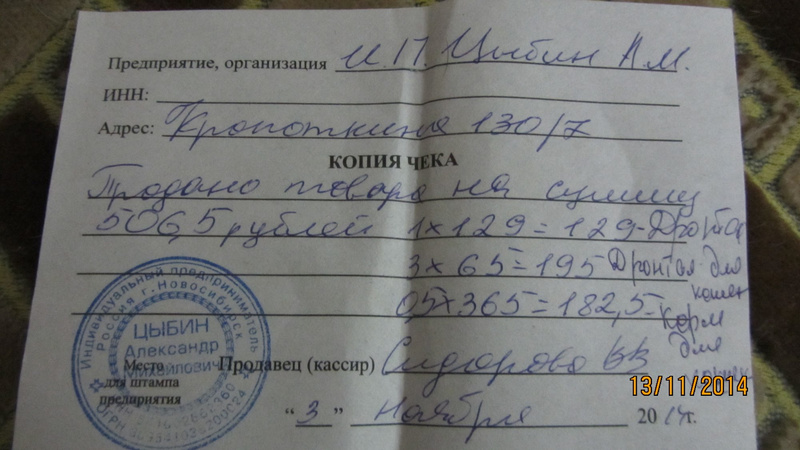 Предприятие, организация И.П. Цыбин А.М.
ИНН:
Адрес: Кропоткина 130/7
КОПИЯ ЧЕКА
Продано товара на сумму
506,5 рублей 1 x 129 = 129 - Дронтал
3 x 65 = 195 Дронтал для
кошек
0,5 x 365 = 182,5 - корм
для
Индивидуальный предприниматель
Россия г. Новосибирск
ЦЫБИН
Александр
Михайлович
Место
для штампа
предприятия
Продавец (кассир) Сидорова
13/11/2014
“ 3 ” ноября 20 14 г.